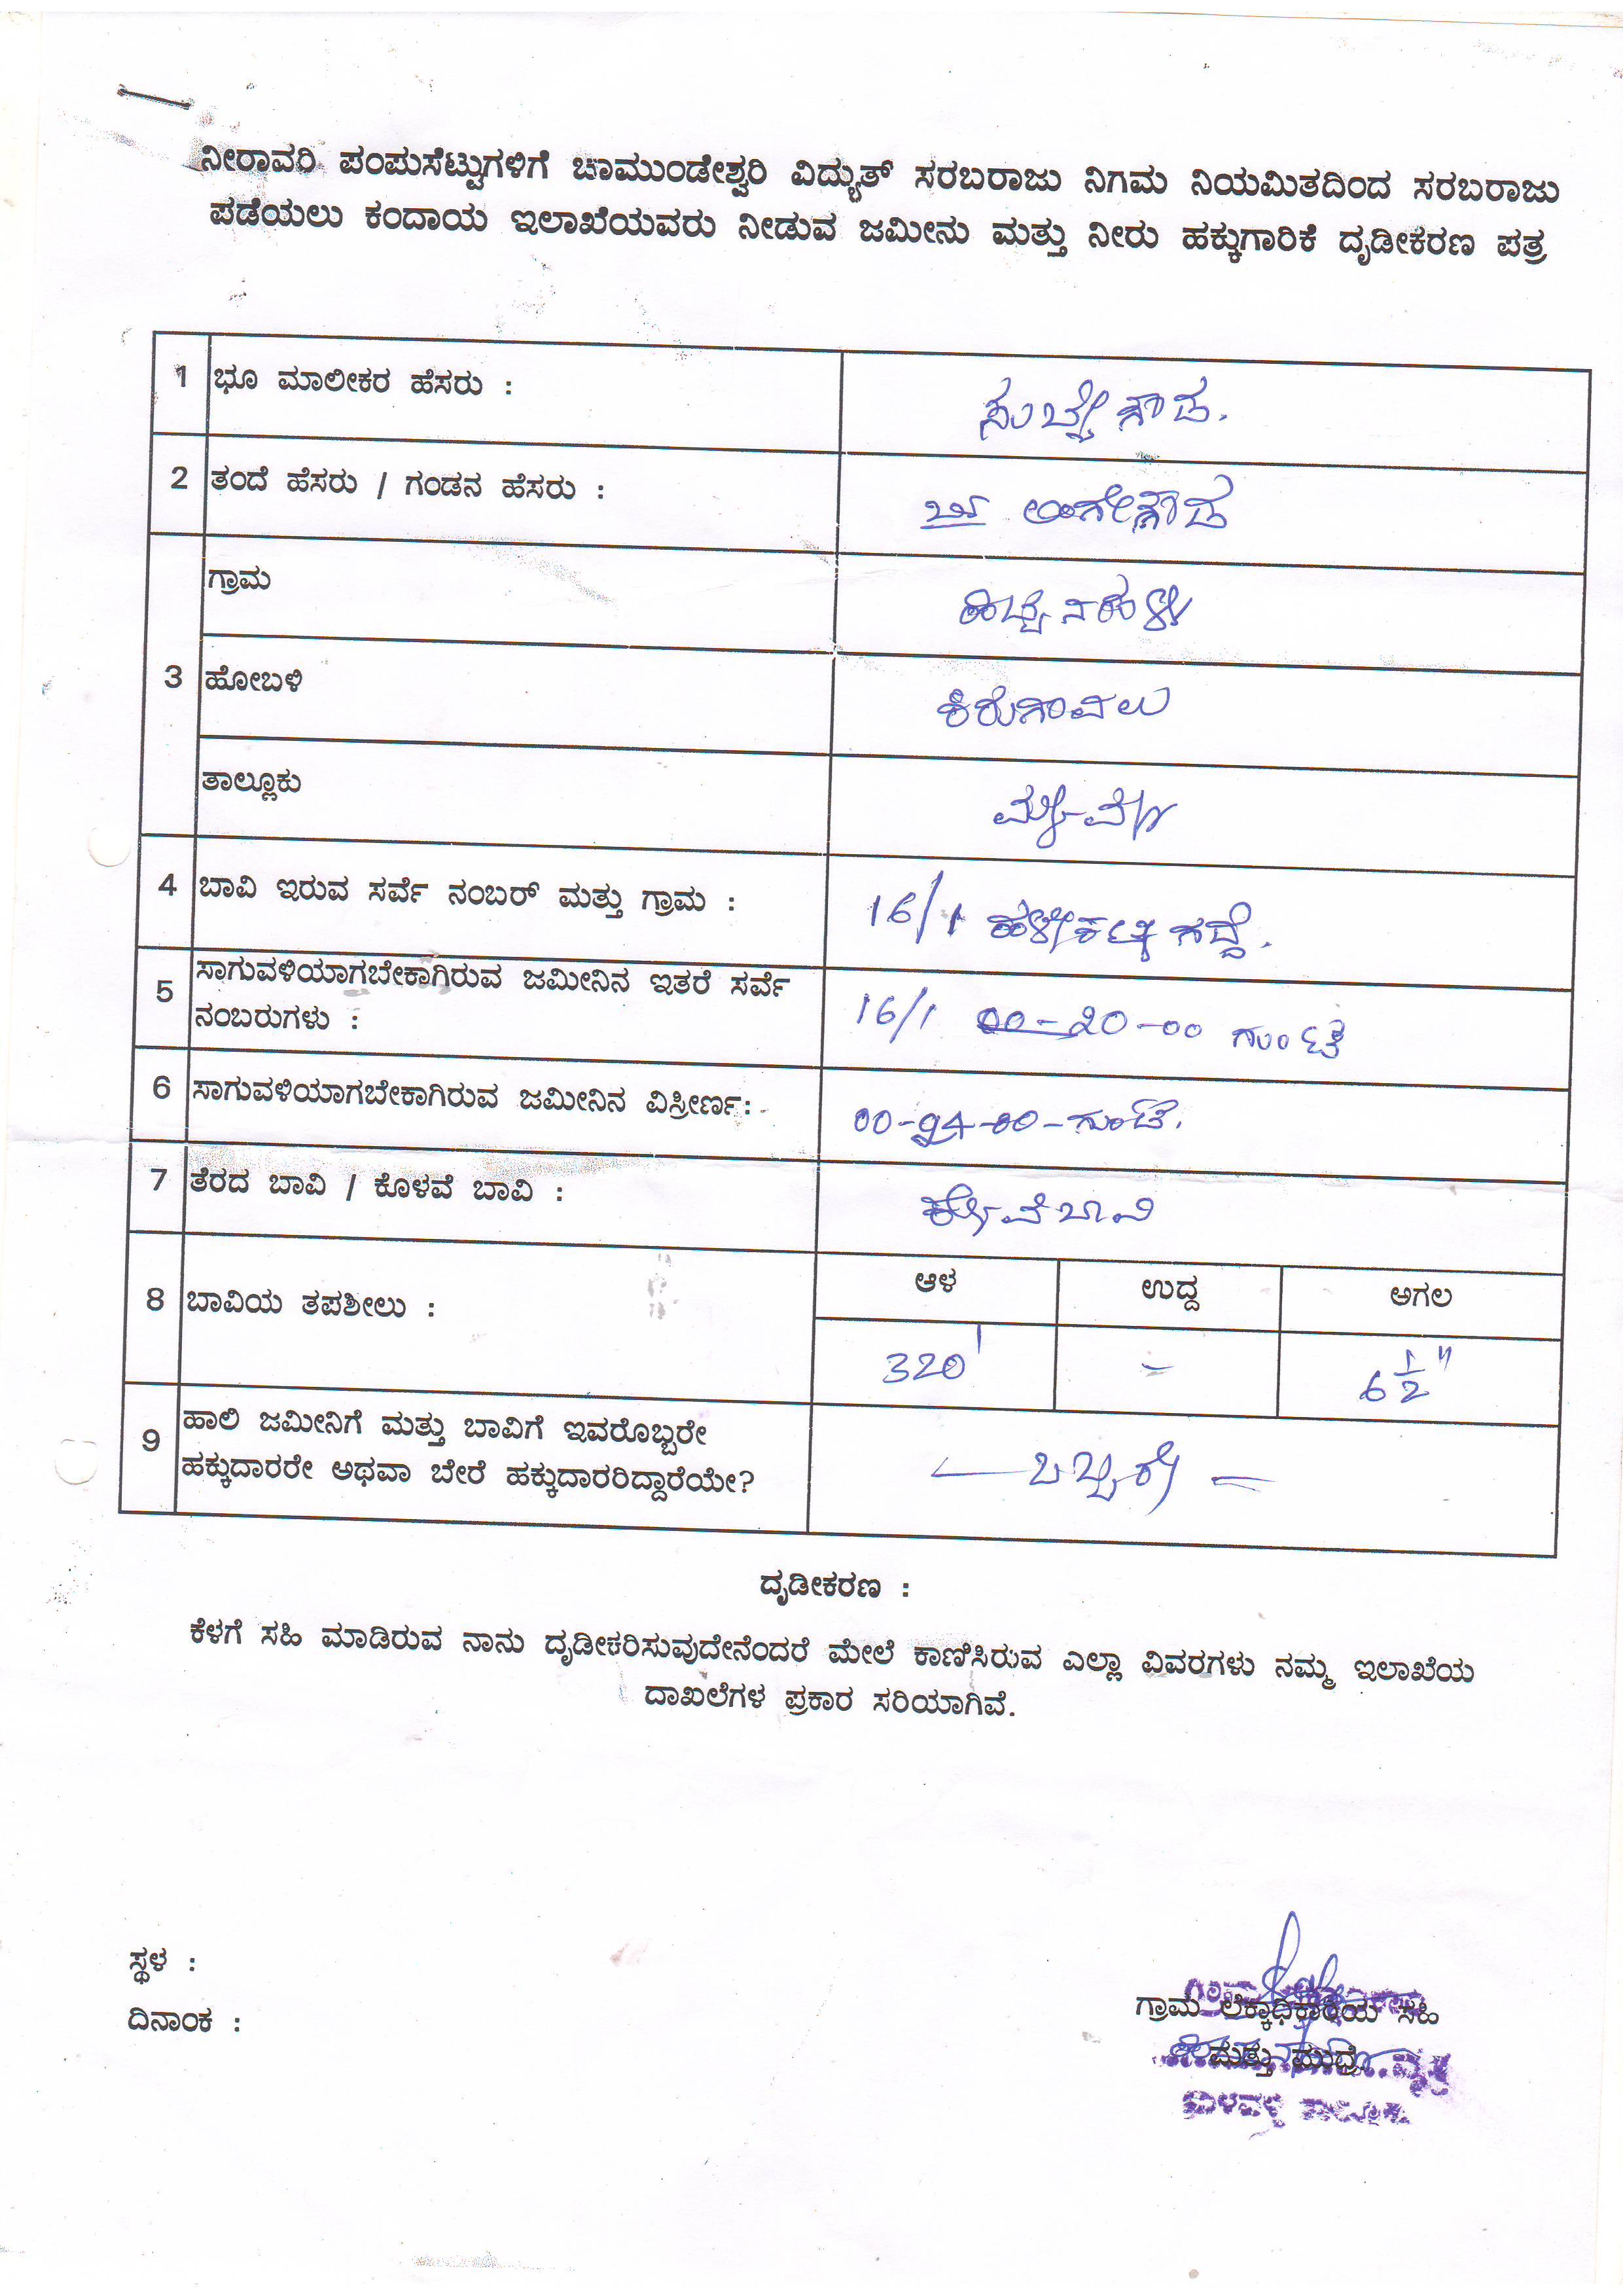 ನೀರಾವರಿ ಪಂಪುಸೆಟ್ಟುಗಳಿಗೆ ಚಾಮುಂಡೇಶ್ವರಿ ವಿದ್ಯುತ್ ಸರಬರಾಜು ನಿಗಮ ನಿಯಮಿತದಿಂದ ಸರಬರಾಜು
ಪಡೆಯಲು ಕಂದಾಯ ಇಲಾಖೆಯವರು ನೀಡುವ ಜಮೀನು ಮತ್ತು ನೀರು ಹಕ್ಕುಗಾರಿಕೆ ದೃಡೀಕರಣ ಪತ್ರ
1 ಭೂ ಮಾಲೀಕರ ಹೆಸರು : ಸುಬ್ಬೇಗೌಡ.
2 ತಂದೆ ಹೆಸರು / ಗಂಡನ ಹೆಸರು :
ಗ್ರಾಮ
3 ಹೋಬಳಿ ಕಿರುಗಾವಲು
ತಾಲ್ಲೂಕು ಮಳವಳ್ಳಿ
4 ಬಾವಿ ಇರುವ ಸರ್ವೆ ನಂಬರ್ ಮತ್ತು ಗ್ರಾಮ : 16/1
5 ಸಾಗುವಳಿಯಾಗಬೇಕಾಗಿರುವ ಜಮೀನಿನ ಇತರೆ ಸರ್ವೆ
ನಂಬರುಗಳು : 16/1 00-20-00 ಗುಂಟೆ
6 ಸಾಗುವಳಿಯಾಗಬೇಕಾಗಿರುವ ಜಮೀನಿನ ವಿಸ್ರೀರ್ಣ: 00-24-00-ಗುಂಟೆ.
7 ತೆರದ ಬಾವಿ / ಕೊಳವೆ ಬಾವಿ : ಕೊಳವೆ ಬಾವಿ
ಆಳ ಉದ್ದ ಅಗಲ
8 ಬಾವಿಯ ತಪಶೀಲು :
320' - 6 1/2"
9 ಹಾಲಿ ಜಮೀನಿಗೆ ಮತ್ತು ಬಾವಿಗೆ ಇವರೊಬ್ಬರೇ
ಹಕ್ಕುದಾರರೇ ಅಥವಾ ಬೇರೆ ಹಕ್ಕುದಾರರಿದ್ದಾರೆಯೇ? — ಒಬ್ಬರೇ —
ದೃಡೀಕರಣ :
ಕೆಳಗೆ ಸಹಿ ಮಾಡಿರುವ ನಾನು ದೃಡೀಕರಿಸುವುದೇನೆಂದರೆ ಮೇಲೆ ಕಾಣಿಸಿರುವ ಎಲ್ಲಾ ವಿವರಗಳು ನಮ್ಮ ಇಲಾಖೆಯ
ದಾಖಲೆಗಳ ಪ್ರಕಾರ ಸರಿಯಾಗಿವೆ.
ಸ್ಥಳ :
ದಿನಾಂಕ :
ಗ್ರಾಮ ಲೆಕ್ಕಾಧಿಕಾರಿಯ ಸಹಿ
ಮತ್ತು ಮುದ್ರೆ